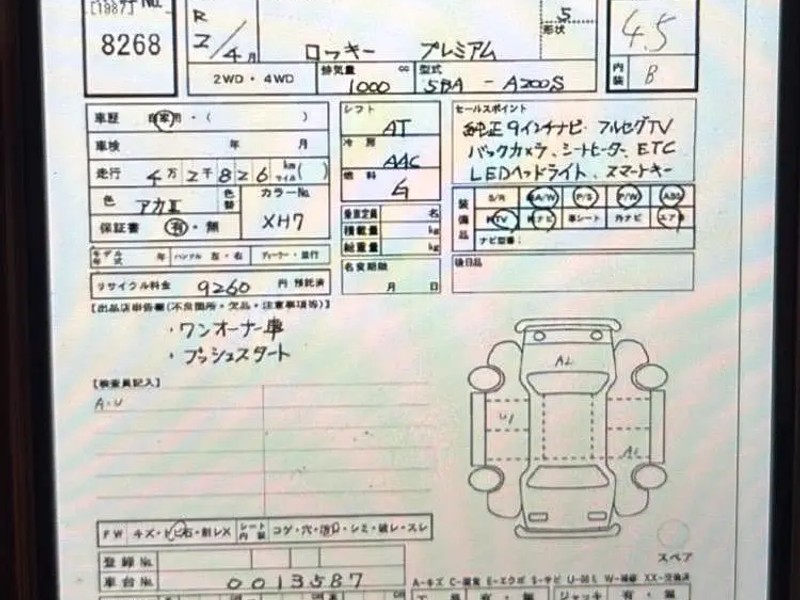 [1987] No.
8268
R
2/4月
ロッキー プレミアム
5
形状
4.5
内装 B
2WD・4WD
排気量 1000 cc
型式 5BA - A200S
車歴 自家用・( )
車検 年 月
走行 4万2千826 km マイル( )
色 アカⅡ 色替
カラーNo. XH7
保証書 有・無
シフト AT
冷房 AAC
燃料 G
乗車定員 名
積載量 kg
総重量 kg
名変期限
月 日
セールスポイント
純正9インチナビ フルセグTV
バックカメラ、シートヒーター、ETC
LEDヘッドライト、スマートキー
装備品
S/R A/W P/S P/W ABS
TV ナビ 革シート 外ナビ エアB
ナビ型番:
後日品
モデル年式 年 ハンドル 左・右 ディーラー・並行
リサイクル料金 9260 円 預託済
【出品店申告欄(不良箇所・欠品・注意事項等)】
・ワンオーナー車
・プッシュスタート
【検査員記入】
A・U
A1
U1
A1
スペア
FW キズ・トビ石・剖レX
シート内装 コゲ・穴・汚レ・シミ・破レ・スレ
登録No.
車台No. 0013587
A-キズ C-腐食 E-エクボ S-サビ U-凹ミ W-補修 XX-交換済
工具 有・無 ジャッキ 有・無